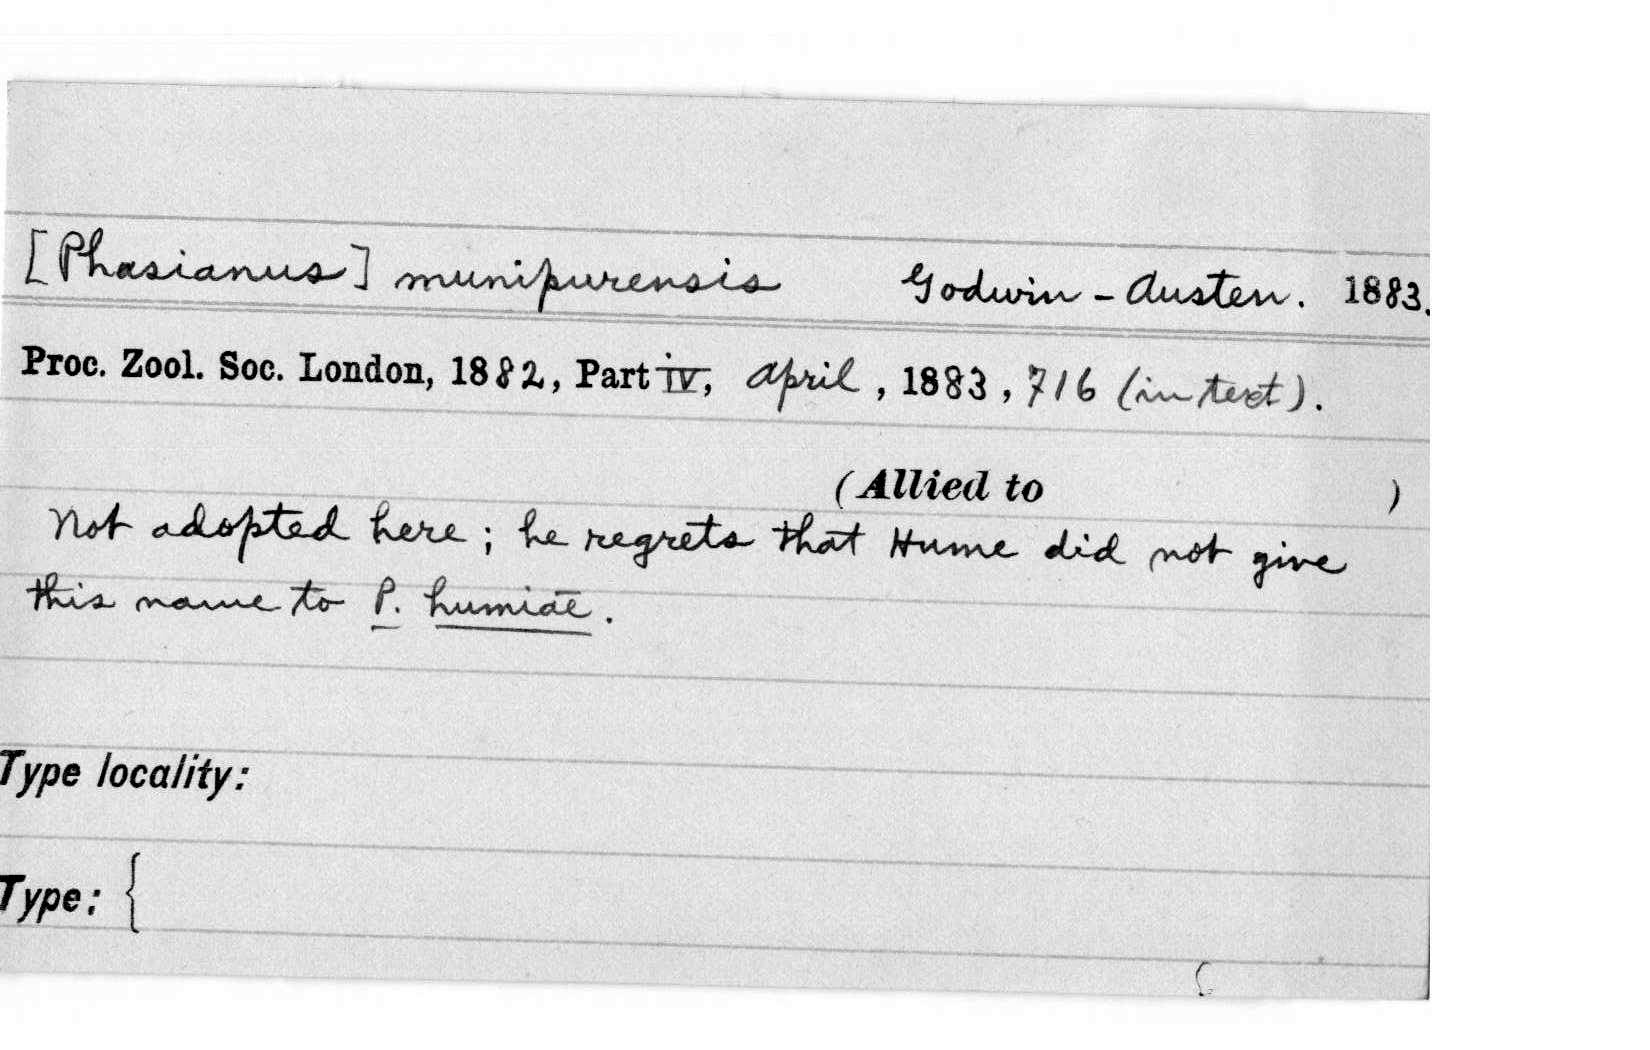 [Phasianus] munipurensis Godwin-Austen. 1883.
Proc. Zool. Soc. London, 1882, Part iv, April, 1883, 716 (in text).
(Allied to )
Not adopted here; he regrets that Hume did not give
this name to P. humiae.
Type locality:
Type: {